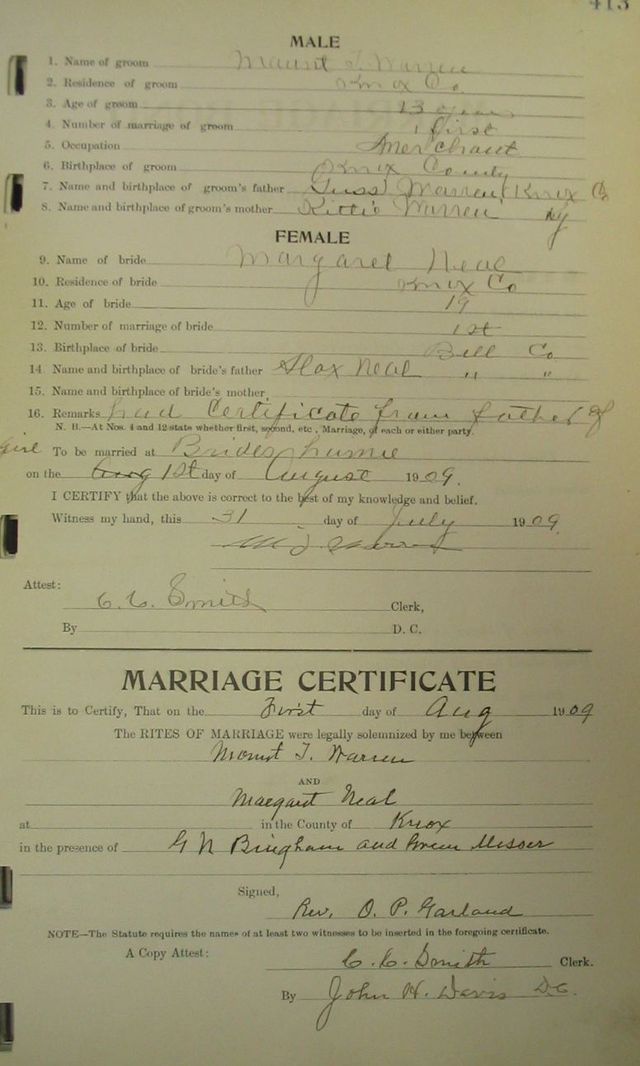 413
MALE
1. Name of groom Mount T. Warren
2. Residence of groom Knox Co.
3. Age of groom 23 years
4. Number of marriage of groom first
5. Occupation Merchant
6. Birthplace of groom Knox County
7. Name and birthplace of groom's father Warren Knox Co
8. Name and birthplace of groom's mother Kittie Warren Ky
FEMALE
9. Name of bride Margaret Neal
10. Residence of bride Knox Co
11. Age of bride 19
12. Number of marriage of bride 1st
13. Birthplace of bride Bell Co
14 Name and birthplace of bride's father Neal " "
15. Name and birthplace of bride's mother
16. Remarks had Certificate from father of
N. B.—At Nos. 4 and 12 state whether first, second, etc., Marriage, of each or either party.
girl To be married at Brides
on the Aug 1st day of August 1909.
I CERTIFY that the above is correct to the best of my knowledge and belief.
Witness my hand, this 31 day of July 1909
Attest:
C. C. Smith Clerk,
By D. C.
MARRIAGE CERTIFICATE
This is to Certify, That on the First day of Aug 1909
The RITES OF MARRIAGE were legally solemnized by me between
Mount T. Warren
AND
Margaret Neal
at in the County of Knox
in the presence of G N Bingham and Green Messer
Signed,
Rev. O. P. Garland
NOTE—The Statute requires the names of at least two witnesses to be inserted in the foregoing certificate.
A Copy Attest:
C. C. Smith Clerk.
By John H. Davis D.C.